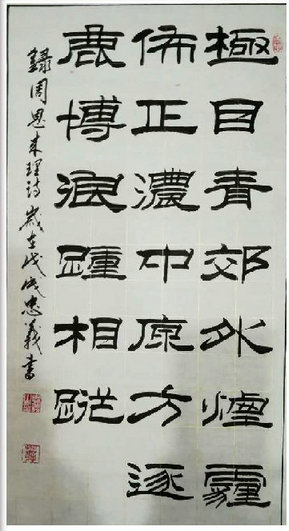 極目青郊外煙霾
佈正濃中原方逐
鹿博浪踵相蹤
錄周恩来理诗歲在戊戌忠義書